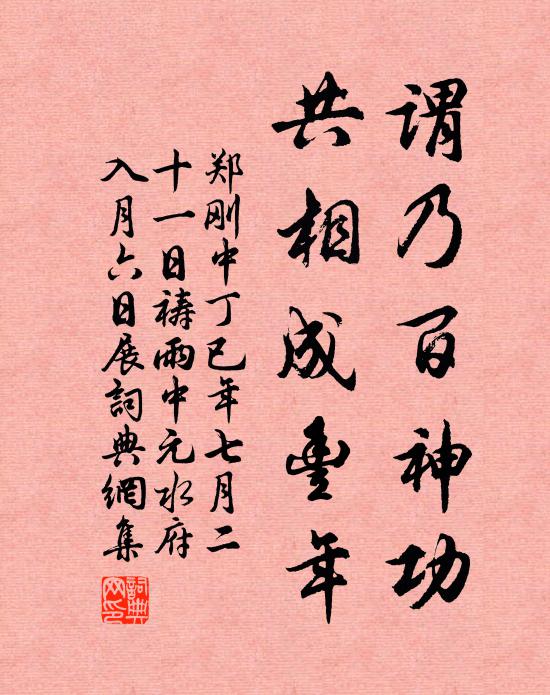 谓乃百神功
共相成豊年
郑刚中丁巳年七月二
十一日祷雨中元水府
入月六日展詞典網集
詞典網印